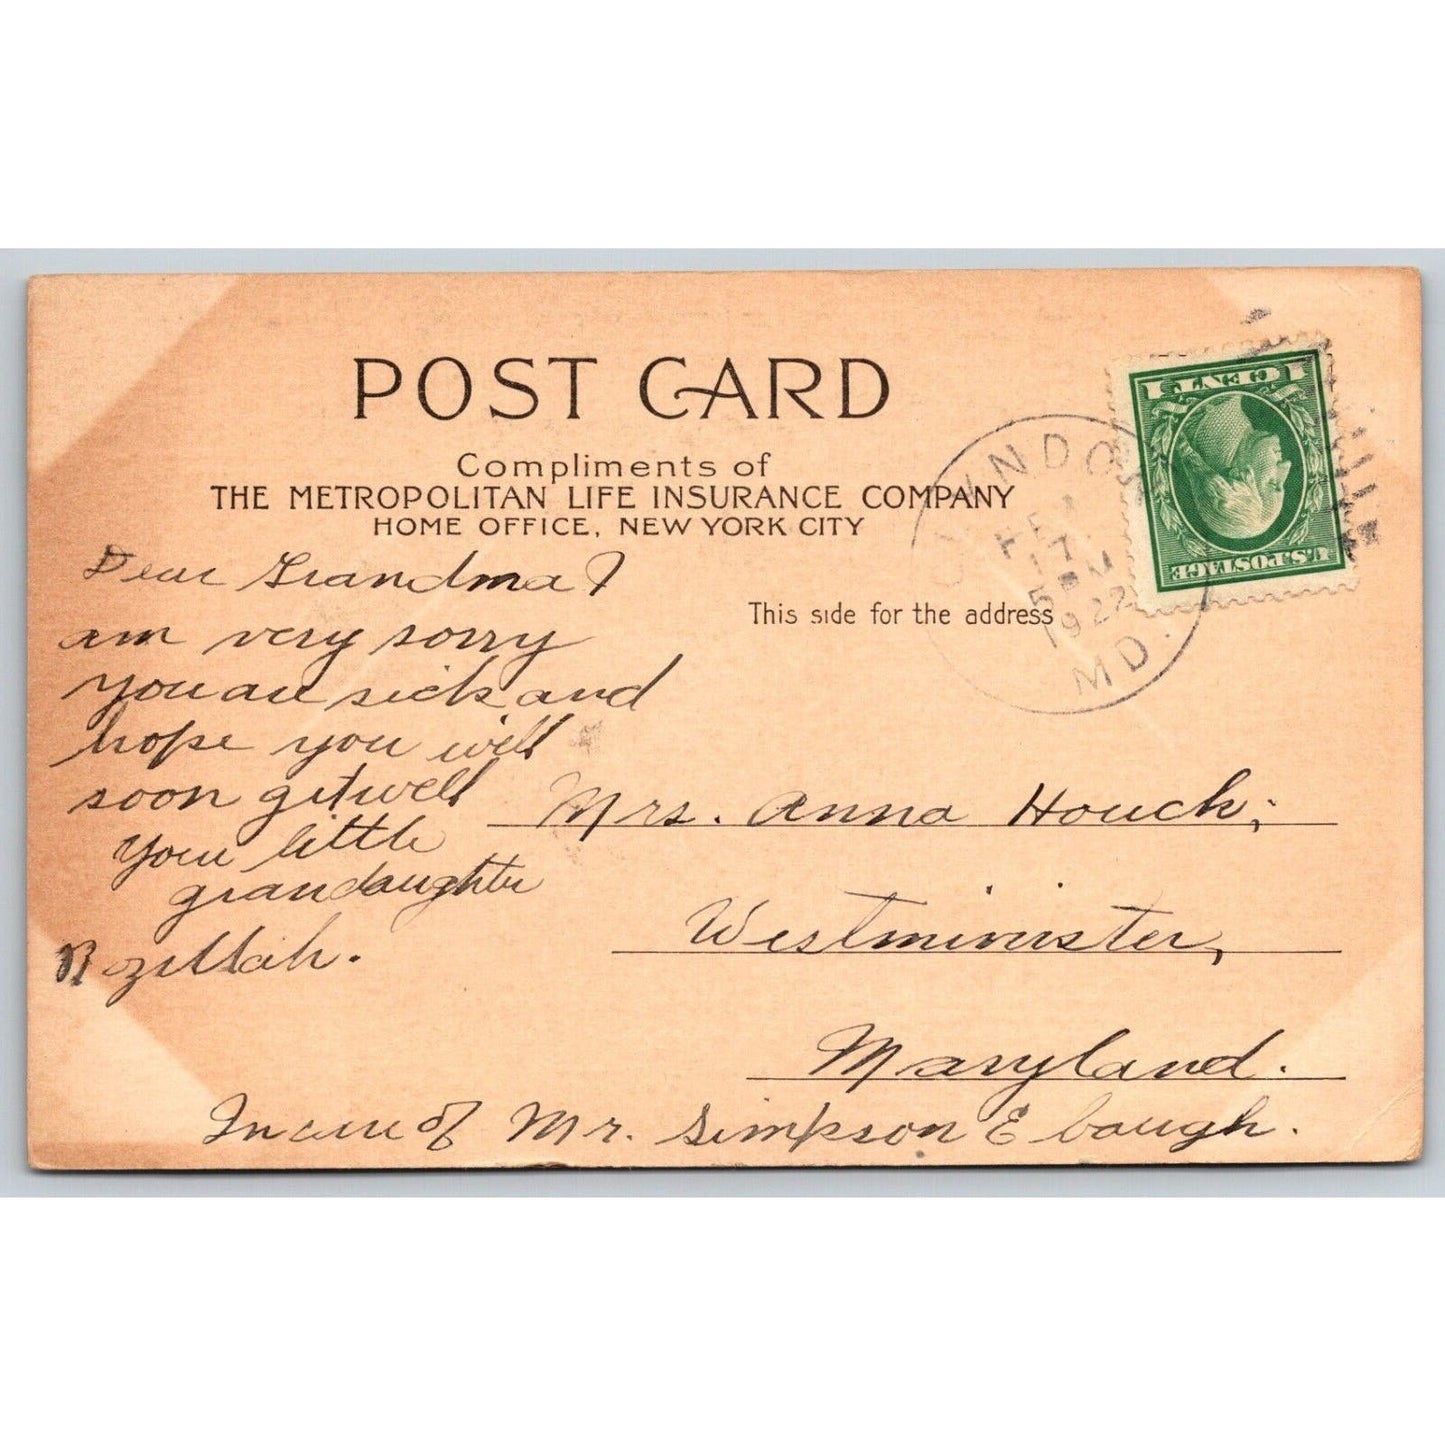 POST CARD
Compliments of
THE METROPOLITAN LIFE INSURANCE COMPANY
HOME OFFICE, NEW YORK CITY
This side for the address
1 CENT 1
U.S. POSTAGE
17
5 PM
1922
MD.
Dear Grandma I
am very sorry
you are sick and
hope you will
soon get well
Your little
grandaughter
Mrs. Anna Houck,
Westminister,
Maryland.
In care of Mr. Simpson Ebaugh.